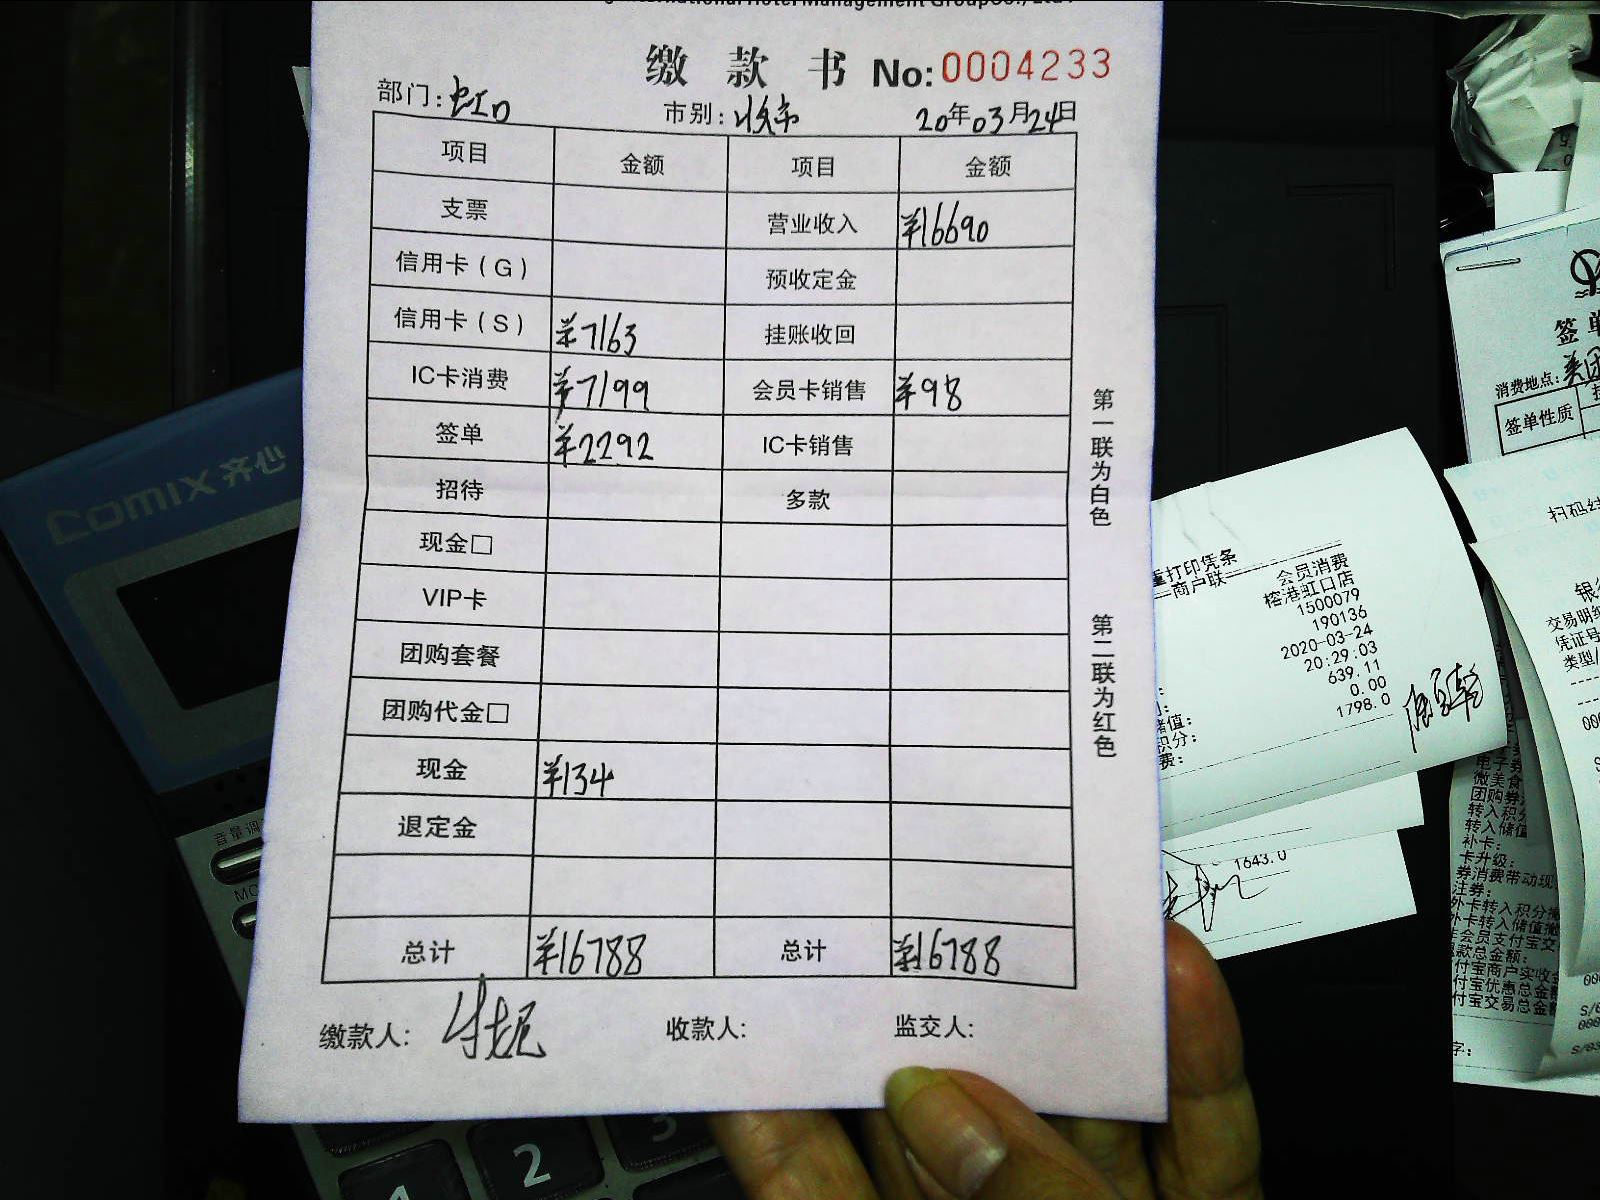 International Hotel Management GroupCo., Ltd.
缴 款 书 No:0004233
部门:虹口 市别:收市 20年03月24日
项目 金额 项目 金额
支票 营业收入 ¥16690
信用卡(G) 预收定金
信用卡(S) ¥7163 挂账收回
IC卡消费 ¥7199 会员卡销售 ¥98
签单 ¥2292 IC卡销售
招待 多款
现金□
VIP卡
团购套餐
团购代金□
现金 ¥134
退定金
总计 ¥16788 总计 ¥16788
缴款人: 收款人: 监交人:
第一联为白色
第二联为红色
COMIX 齐心
音量调
2
3
1
重打印凭条
商户联
会员消费
榕港虹口店
1500079
190136
2020-03-24
20:29:03
639.11
0.00
1798.0
储值:
积分:
费:
1643.0
签单
消费地点:美团
签单性质
扫码
银
交易明细
凭证号
类型/
电子券
微美食
团购券
转入积分
转入储值
补卡:
卡升级:
券消费带动现
注券:
外卡转入积分
外卡转入储值
会员支付宝交
款总金额:
付宝商户实收金
付宝优惠总金额
付宝交易总金额
字: